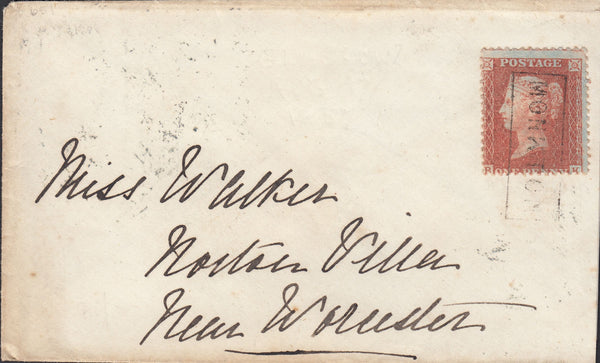 POSTAGE
MONK
Miss Walker
Norton Villa
Near Worcester